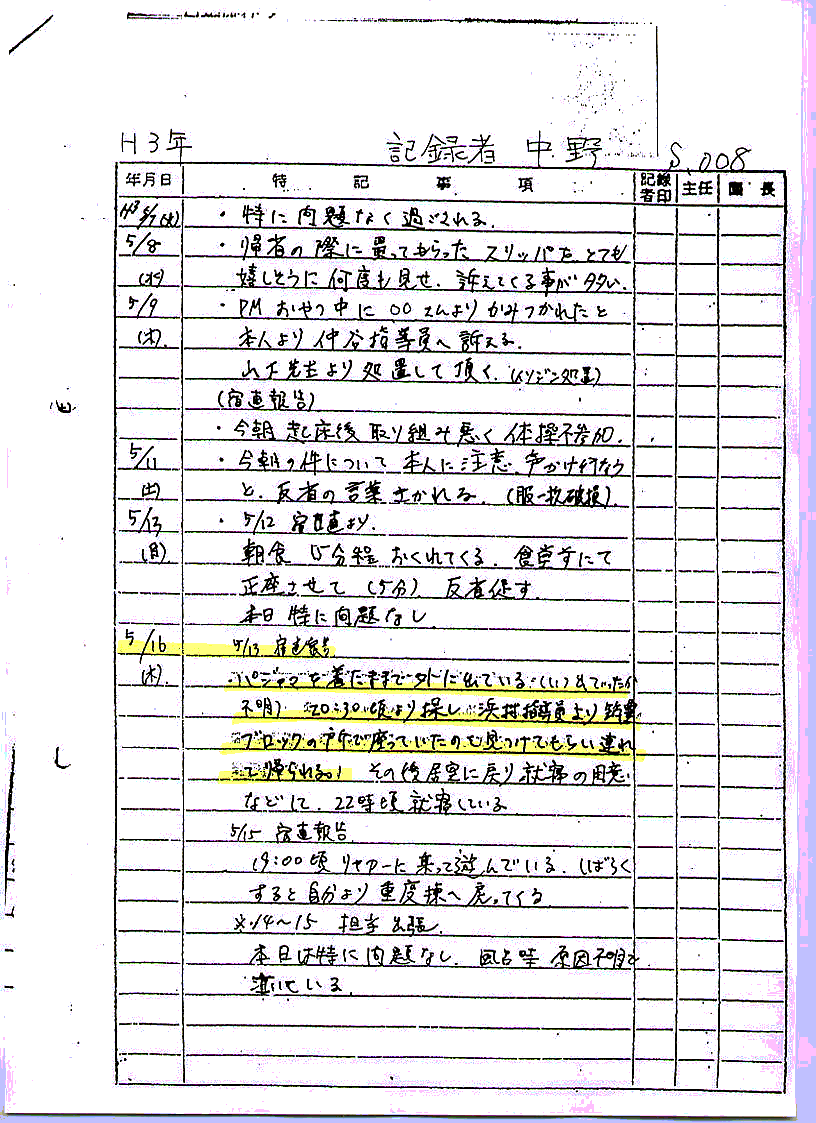 H3年 記録者 中野 S.008
年月日 特記事項 記録者印 主任 園長
H3 5/7(火) ・特に問題なく過ごされる。
5/8 ・帰省の際に買ってもらったスリッパをとても
(水) 嬉しそうに何度も見せ、訴えてくる事が多い。
5/9 ・PM おやつ中に○○さんよりかみつかれたと
(木) 本人より仲谷指導員へ訴える。
山下先生より処置して頂く。(イソジン処置)
(宿直報告)
・今朝起床後取り組み悪く体操不参加。
5/11 ・今朝の件について本人に注意、声かけ行なう
(土) と、反省の言葉きかれる。(服一枚破損)
5/13 ・5/12 宿直より、
(月) 朝食15分程おくれてくる。食堂
正座させて(5分)反省促す。
本日特に問題なし
5/16 5/13 宿直報告
(木) パジャマを着たままで外に出でいる。(いつ出ていったか
不明) 20:30頃より探し、浜村指導員より
ブロックの所で座っていたのを見つけてもらい連れ
て帰られる。) その後居室に戻り就寝の用意
などして、22時頃就寝している
5/15 宿直報告
19:00頃リヤカーに乗って遊んでいる。しばらく
すると自分より重度棟へ戻ってくる
※14〜15 担当出張。
本日は特に問題なし。 原因不明で
泣いている。